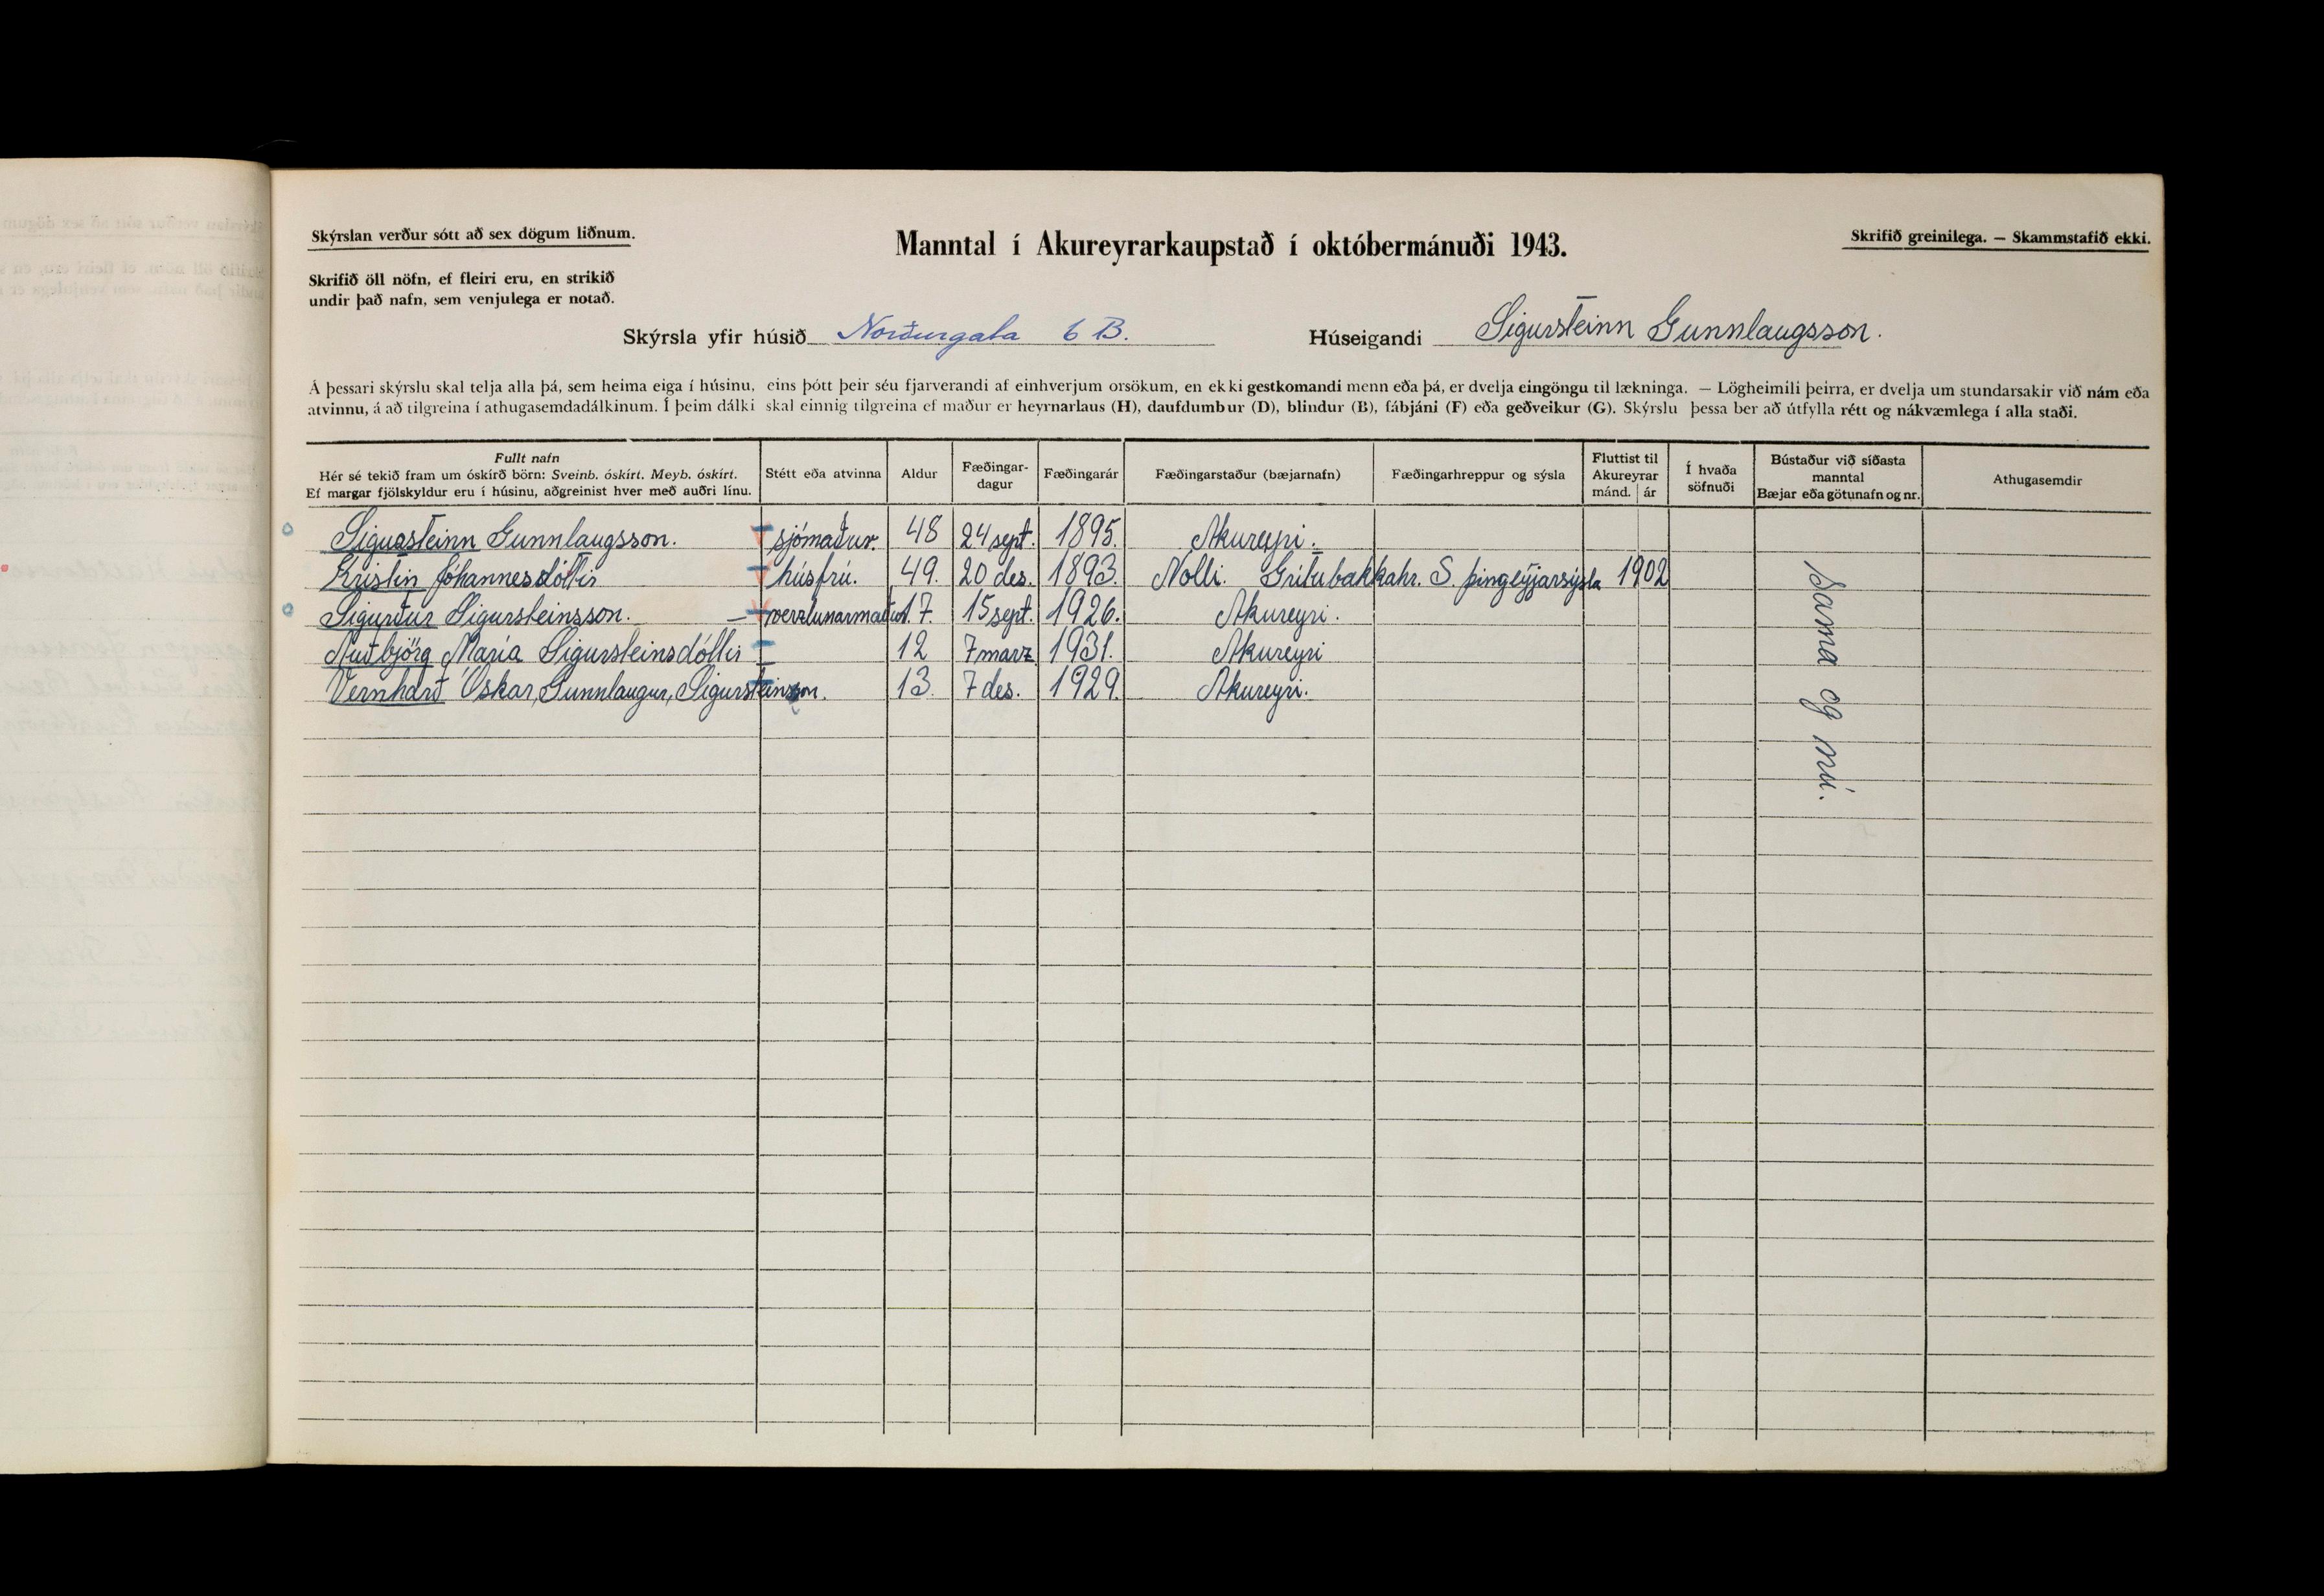 Skýrslan verður sótt að sex dögum liðnum.
Manntal í Akureyrarkaupstað í októbermánuði 1943.
Skrifið greinilega. — Skammstafið ekki.
Skrifið öll nöfn, ef fleiri eru, en strikið
undir það nafn, sem venjulega er notað.
Skýrsla yfir húsið Norðurgata 6 B. Húseigandi Sigursteinn Gunnlaugsson.
Á þessari skýrslu skal telja alla þá, sem heima eiga í húsinu, eins þótt þeir séu fjarverandi af einhverjum orsökum, en ekki gestkomandi menn eða þá, er dvelja eingöngu til lækninga. — Lögheimili þeirra, er dvelja um stundarsakir við nám eða
atvinnu, á að tilgreina í athugasemdadálkinum. Í þeim dálki skal einnig tilgreina ef maður er heyrnarlaus (H), daufdumbur (D), blindur (B), fábjáni (F) eða geðveikur (G). Skýrslu þessa ber að útfylla rétt og nákvæmlega í alla staði.
Fullt nafn
Hér sé tekið fram um óskírð börn: Sveinb. óskírt. Meyb. óskírt.
Ef margar fjölskyldur eru í húsinu, aðgreinist hver með auðri línu.
Stétt eða atvinna
Aldur
Fæðingar-
dagur
Fæðingarár
Fæðingarstaður (bæjarnafn)
Fæðingarhreppur og sýsla
Fluttist til
Akureyrar
mánd. ár
Í hvaða
söfnuði
Bústaður við síðasta
manntal
Bæjar eða götunafn og nr.
Athugasemdir
Sigursteinn Gunnlaugsson. sjómaður. 48 24 sept. 1895. Akureyri.
Kristin Jóhannesdóttir húsfrú. 49. 20 des. 1893. Nolli. Grítubakkahr. S. þingeyjarsýsla 1902
Sigurður Sigursteinsson. — verzlunarmaður 17. 15 sept. 1926. Akureyri.
Auðbjörg María Sigursteinsdóttir 12 7 marz 1931. Akureyri
Vernharð Óskar, Gunnlaugur, Sigursteinsson. 13. 7 des. 1929. Akureyri.
Sama og nú.